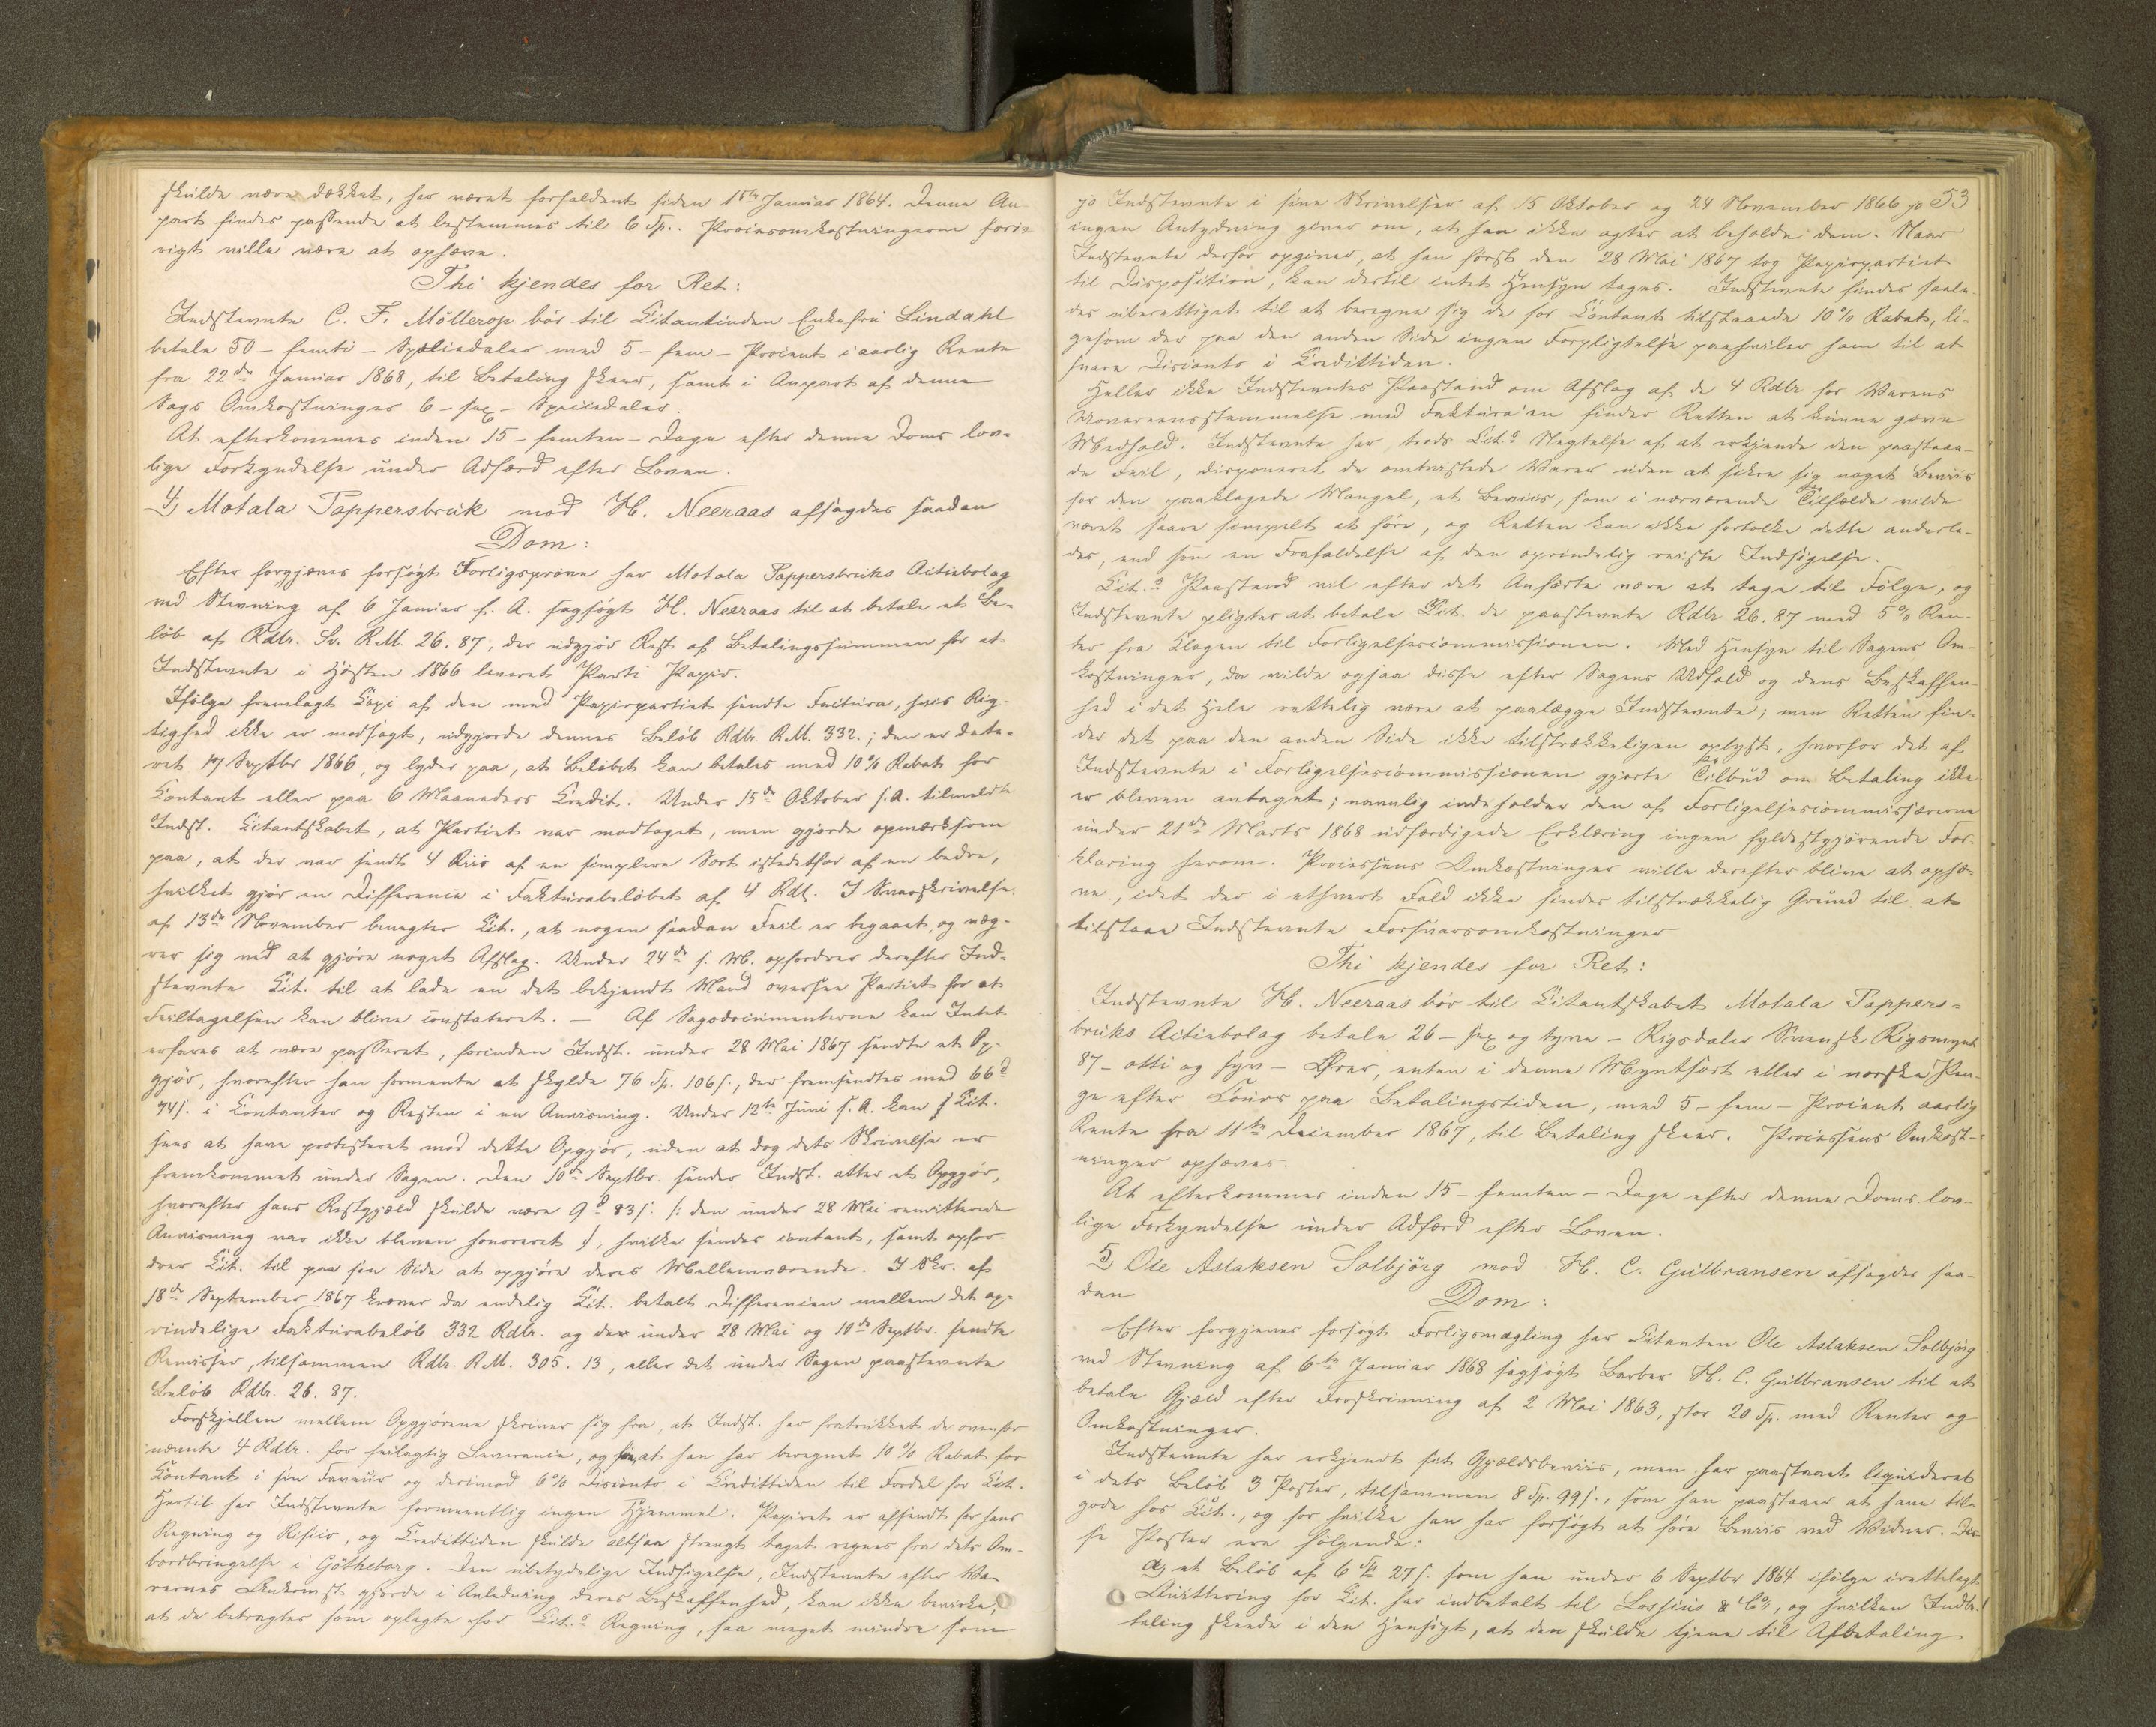 skulde være dækket, har været forfaldent siden 15de Januar 1864. Denne An-
part findes passende at bestemmes til 6 Sp.. Procesomkostningerne forøv-
rigt ville være at ophæve.
Thi kjendes for Ret:
Indstevnte C. F. Möllerop bør til Citantinden Enkefru Lindahl
betale 50 - femti - Speciedaler med 5 - fem - Procent i aarlig Rente
fra 22de Januar 1868, til Betaling skeer, samt i Anpart af denne
Sags Omkostninger 6 - sex - Speciedaler.
At efterkommes inden 15 - femten - Dage efter denne Doms lov-
lige Forkyndelse under Adfærd efter Loven.
4) Motala Pappersbruk mod H. Neeraas afsagdes saadan
Dom:
Efter forgjæves forsøgt Forligsprøve har Motala Pappersbruks Actiebolag
ved Stevning af 6 Januar f. A. sagsøgt H. Neeraas til at betale et Be-
løb af Rdlr. Sv. R.M. 26.87, der udgjør Rest af Betalingssummen for et
Indstevnte i Høsten 1866 leveret Parti Papir.
Ifølge fremlagt Copi af den med Papirpartiet sendte Factura, hvis Rig-
tighed ikke er modsagt, udgjorde dennes Beløb Rdlr. R.M. 332.; den er date-
ret 17 Septbr 1866, og lyder paa, at Beløbet kan betales med 10% Rabat for
Contant eller paa 6 Maaneders Credit. Under 15de Oktober s.A. tilmeldte
Indst. Citantskabet, at Partiet var modtaget, men gjorde opmærksom
paa, at der var sendt 4 Riis af en simplere Sort istedetfor af en bedre,
hvilket gjør en Difference i Fakturabeløbet af 4 Rdl. I Svarskrivelse
af 13de November benegter Cit., at nogen saadan Feil er begaaet, og væg-
rer sig ved at gjøre noget Afslag. Under 24de s. M. opfordrer derefter Ind-
stevnte Cit. til at lade en det bekjendt Mand oversee Partiet for at
Feiltagelsen kan blive constateret. - Af Sagsdocumenterne kan Intet
erfares at være passeret, forinden Indst. under 28 Mai 1867 sendte et Op-
gjør, hvorefter han formente at skylde 76 Sp. 106 s., der fremsendtes med 66 d
74 s. i Contanter og Resten i en Anvisning. Under 12te Juni s. A. kan Cit.
sees at have protesteret mod dette Opgjør, uden at dog dets Skrivelse er
fremkommet under Sagen. Den 10de Septbr. sender Indst. atter et Opgjør,
hvorefter hans Restgjæld skulde være 9 d 83 s. /: den under 28 Mai remitterede
Anvisning var ikke bleven honoreret :/, hvilke sendes contant, samt opfor-
drer Cit. til paa sin Side at opgjøre deres Mellemværende. I Skr. af
18de September 1867 kræver da endelig Cit. betalt Differencen mellem det op-
rindelige Fakturabeløb 332 Rdlr. og der under 28 Mai og 10de Septbr. sendte
Remisser, tilsammen Rdlr. R.M. 305.13, eller det under Sagen paastevnte
Beløb Rdlr. 26.87.
Forskjellen mellem Opgjørene skriver sig fra, at Indst. har fratrukket de ovenfor
nævnte 4 Rdlr. for feilagtig Leverance, og at han har beregnet 10% Rabat for
Contant i sin Faveur og derimod 6% Disconto i Credittiden til Fordel for Cit.
Hertil har Indstevnte formeentlig ingen Hjemmel. Papiret er afsendt for hans
Regning og Risico, og Credittiden skulde altsaa strengt taget regnes fra dets Om-
bordbringelse i Götheborg. Den ubetydelige Indsigelse, Indstevnte efter Va-
rernes Ankomst gjorde i Anledning deres Beskaffenhed, kan ikke bevirke,
at de betragtes som oplagte for Cit.s Regning, saa meget mindre som
53
jo Indstevnte i sine Skrivelser af 15 Oktober og 24 November 1866 jo
ingen Antydning giver om, at han ikke agter at beholde dem. Naar
Indstevnte derfor opgiver, at han først den 28 Mai 1867 tog Papirpartiet
til Disposition, kan dertil intet Hensyn tages. Indstevnte findes saale-
des uberettiget til at beregne sig de for Contant tilstaaede 10% Rabat, li-
gesom der paa den anden Side ingen Forpligtelse paahviler ham til at
svare Disconto i Credittiden.
Heller ikke Indstevntes Paastand om Afslag af de 4 Rdlr for Varens
Uovereensstemmelse med Faktura'en finder Retten at kunne give
Medhold. Indstevnte har, trods Cit.s Negtelse af at erkjende den paastaae-
de Feil, disponeret de omtvistede Varer uden at sikre sig noget Beviis
for den paaklagede Mangel, et Beviis, som i nærværende Tilfælde vilde
været saare simpelt at føre, og Retten kan ikke fortolke dette anderle-
des, end som en Frafaldelse af den oprindelig reiste Indsigelse.
Cit.s Paastand vil efter det Anførte være at tage til Følge, og
Indstevnte pligter at betale Cit. de paastevnte Rdlr 26.87 med 5% Ren-
ter fra Klagen til Forligelsescommissionen. Med Hensyn til Sagens Om-
kostninger, da vilde ogsaa disse efter Sagens Udfald og dens Beskaffen-
hed i det Hele rettelig være at paalægge Indstevnte; men Retten fin-
der det paa den anden Side ikke tilstrækkeligen oplyst, hvorfor det af
Indstevnte i Forligelsescommissionen gjorte Tilbud om Betaling ikke
er bleven antaget; navnlig indeholder den af Forligelsescommissærerne
under 21de Marts 1868 udfærdigede Erklæring ingen fyldestgjørende For-
klaring herom. Processens Omkostninger ville derefter blive at ophæ-
ve, idet der i ethvert Fald ikke findes tilstrækkelig Grund til at
tilstaae Indstevnte Forsvarsomkostninger
Thi kjendes for Ret:
Indstevnte H. Neeraas bør til Citantskabet Motala Pappers-
bruks Actiebolag betale 26 - sex og tyve - Rigsdaler Svensk Rigsmynt
87 - otti og syv - Ører, enten i denne Myntsort eller i norske Pen-
ge efter Cours paa Betalingstiden, med 5 - fem - Procent aarlig
Rente fra 11te December 1867, til Betaling skeer. Processens Omkost-
ninger ophæves.
At efterkommes inden 15 - femten - Dage efter denne Doms lov-
lige Forkyndelse under Adfærd efter Loven.
5) Ole Aslaksen Solbjörg mod H. C. Gulbransen afsagdes saa-
dan
Dom:
Efter forgjæves forsøgt Forligsmægling har Citanten Ole Aslaksen Solbjörg
ved Stevning af 6te Januar 1868 sagsøgt Barber H. C. Gulbransen til at
betale Gjæld efter Forskrivning af 2 Mai 1863, stor 20 Sp. med Renter og
Omkostninger.
Indstevnte har erkjendt sit Gjældsbeviis, men har paastaaet liquideret
i dets Beløb 3 Poster, tilsammen 8 Sp. 99 s., som han paastaaer at have til-
gode hos Cit., og for hvilke han har forsøgt at føre Beviis ved Vidner. Dis-
se Poster ere følgende:
a) et Beløb af 6 Sp 27 s. som han under 6 Septbr 1864 ifølge irettelagt
Quittering for Cit. har indbetalt til Lossius & Co, og hvilken Indbe-
taling skeede i den Hensigt, at den skulde tjene til Afbetaling